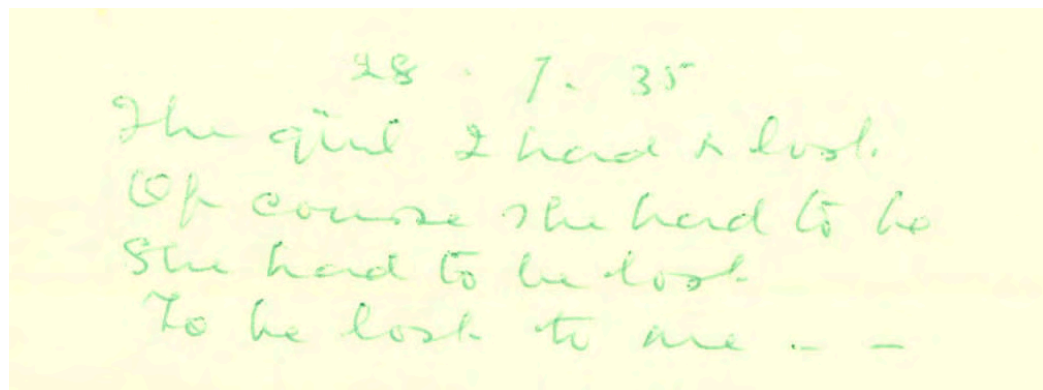 28 . 7. 35
The girl I had & lost.
Of course she had to be
She had to be lost
To be lost to me . - -